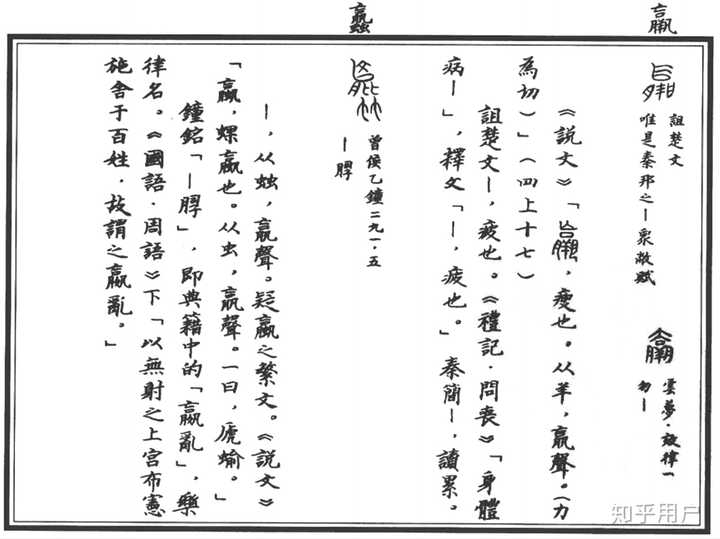 羸
詛楚文
唯是秦邦之—衆敝賦
雲夢·效律一
勿—
《說文》「羸，瘦也。从羊，𣎆聲。（力
為切）」（四上十七）
詛楚文—，疲也。《禮記·問喪》「身體
病—」，釋文「—，疲也。」秦簡—，讀累。
曾侯乙鐘二九一·五
—脬
—，从䖵，𣎆聲。疑蠃之繁文。《說文》
「蠃，蜾蠃也。从虫，𣎆聲。一曰，虒蝓。」
鐘銘「—脬」，即典籍中的「嬴亂」，樂
律名。《國語·周語》下「以無射之上宮布憲
施舍于百姓，故謂之嬴亂。」
知乎用户